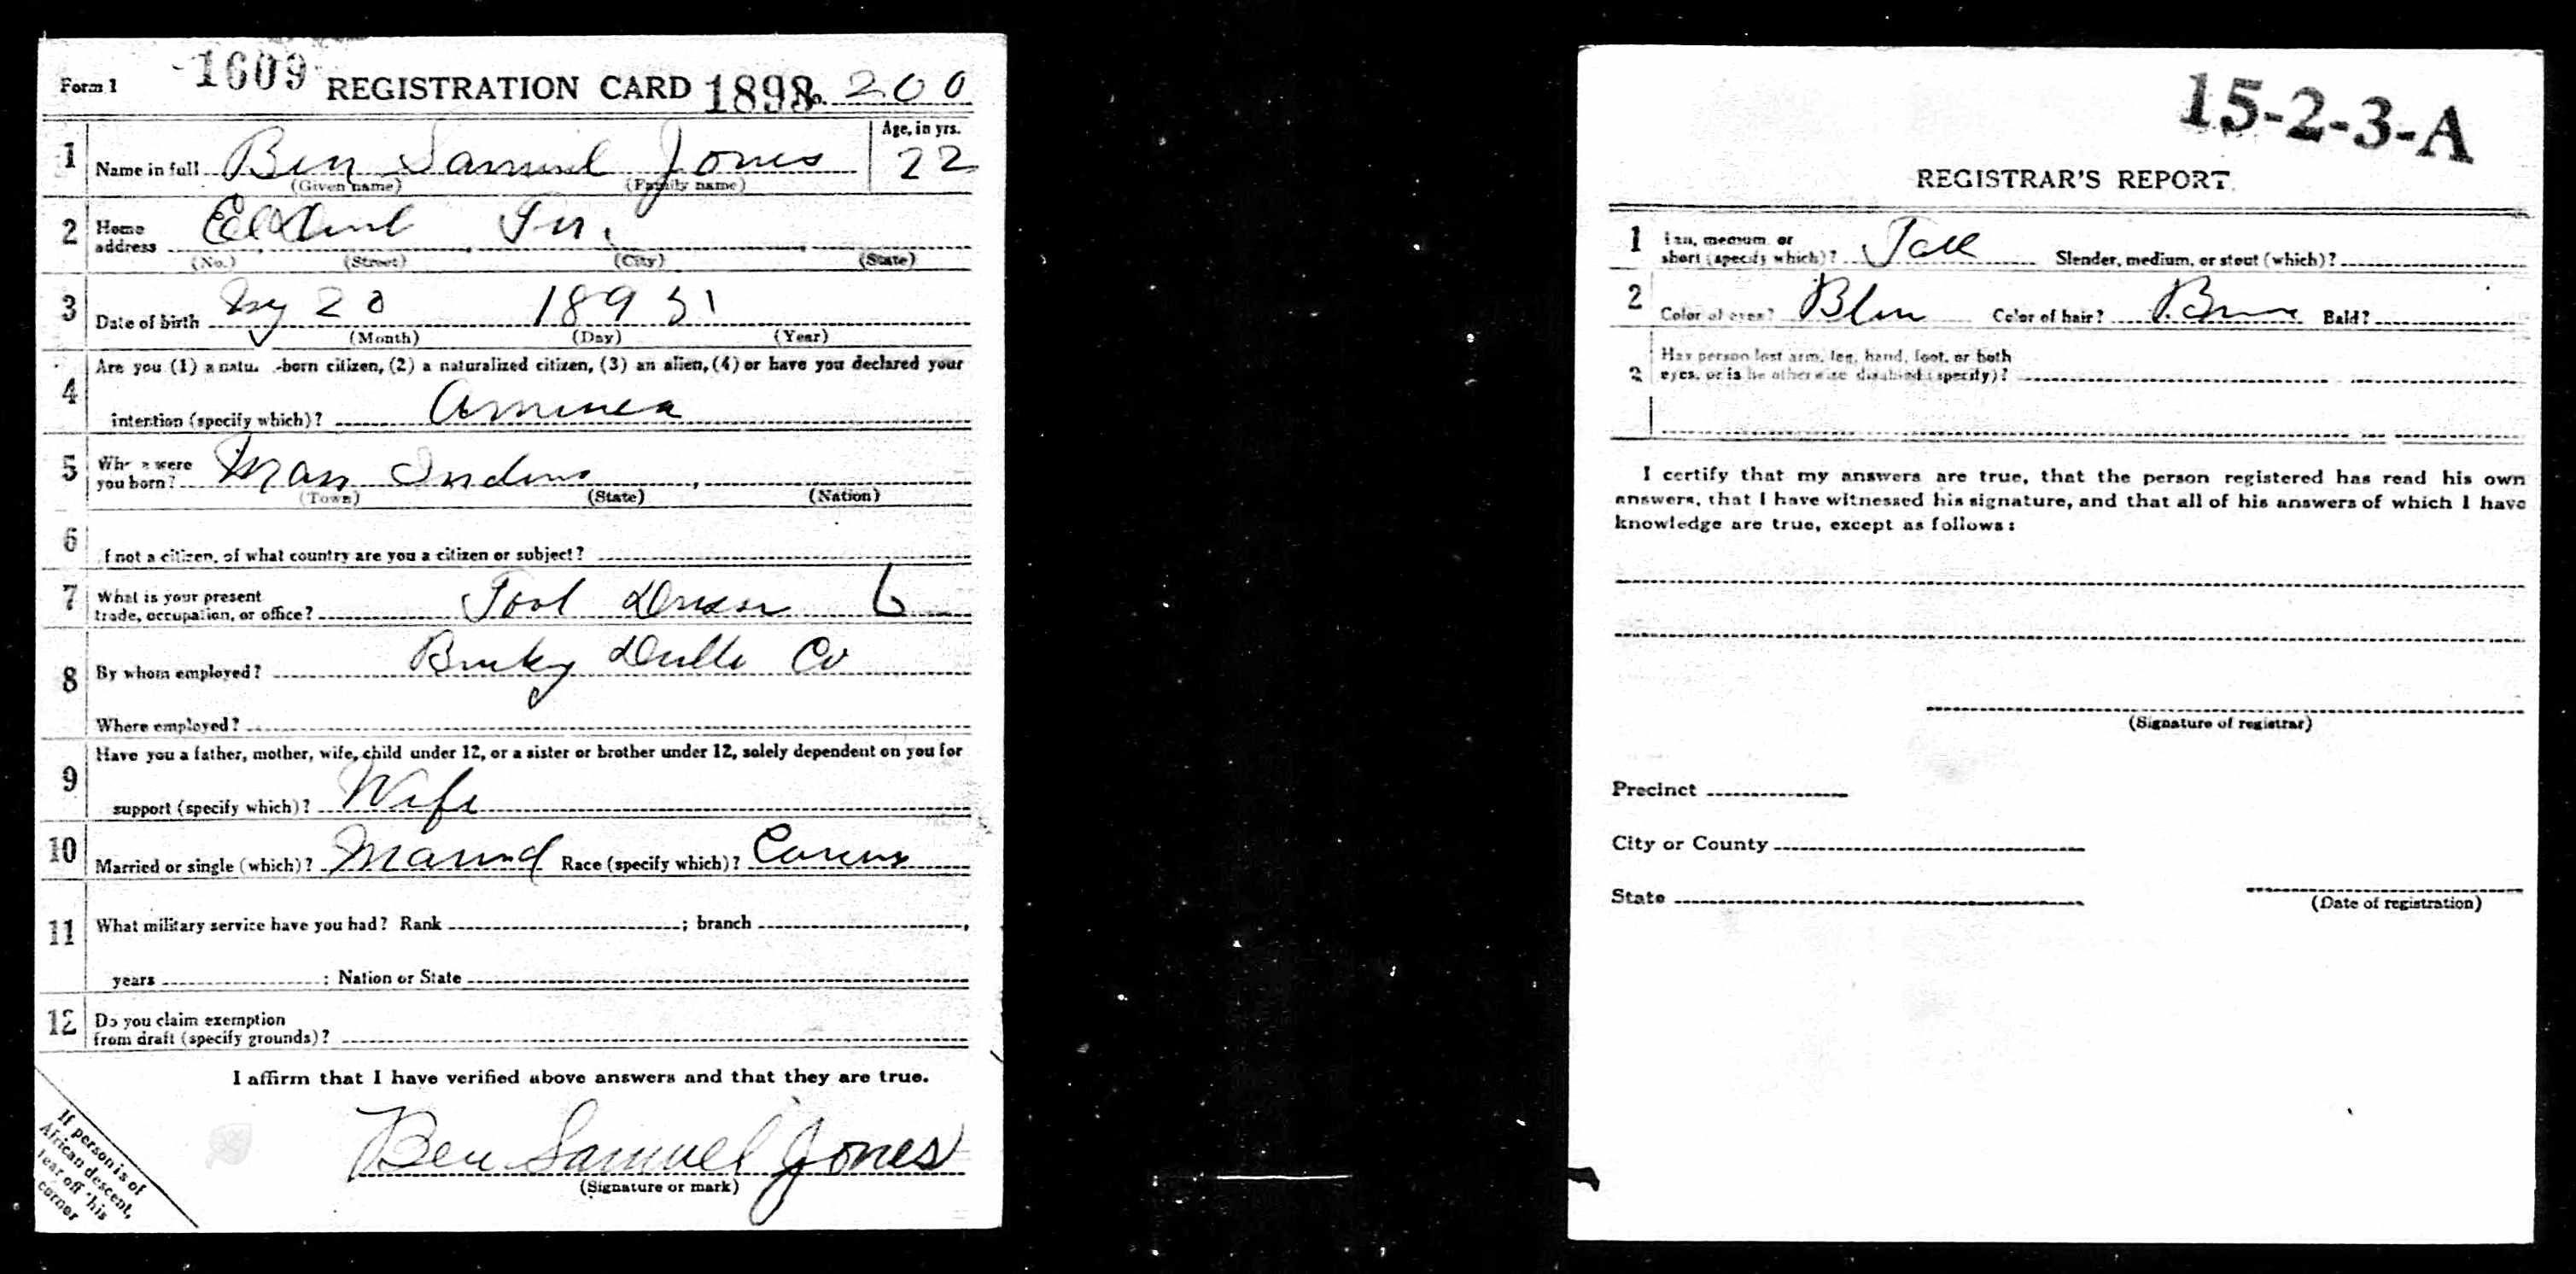 Form 1 1609 REGISTRATION CARD 1898 No. 200
1 Name in full Ben Samuel Jones Age, in yrs. 22
(Given name) (Family name)
2 Home address
(No.) (Street) (City) (State)
3 Date of birth 20
(Month) (Day) (Year)
4 Are you (1) a natu -born citizen, (2) a naturalized citizen, (3) an alien, (4) or have you declared your
intention (specify which)?
5 Where were you born?
(Town) (State) (Nation)
6 If not a citizen, of what country are you a citizen or subject?
7 What is your present
trade, occupation, or office? Tool Dresser 6
8 By whom employed? Co
Where employed?
9 Have you a father, mother, wife, child under 12, or a sister or brother under 12, solely dependent on you for
support (specify which)? Wife
10 Married or single (which)? Married Race (specify which)?
11 What military service have you had? Rank ; branch ,
years ; Nation or State
12 Do you claim exemption
from draft (specify grounds)?
I affirm that I have verified above answers and that they are true.
Ben Samuel Jones
(Signature or mark)
If person is of
African descent,
tear off this
corner
15-2-3-A
REGISTRAR'S REPORT
1 Tall, medium, or
short (specify which)? Tall Slender, medium, or stout (which)?
2 Color of eyes? Blue Color of hair? Brown Bald?
3 Has person lost arm, leg, hand, foot, or both
eyes, or is he otherwise disabled (specify)?
I certify that my answers are true, that the person registered has read his own
answers, that I have witnessed his signature, and that all of his answers of which I have
knowledge are true, except as follows:
(Signature of registrar)
Precinct
City or County
State
(Date of registration)